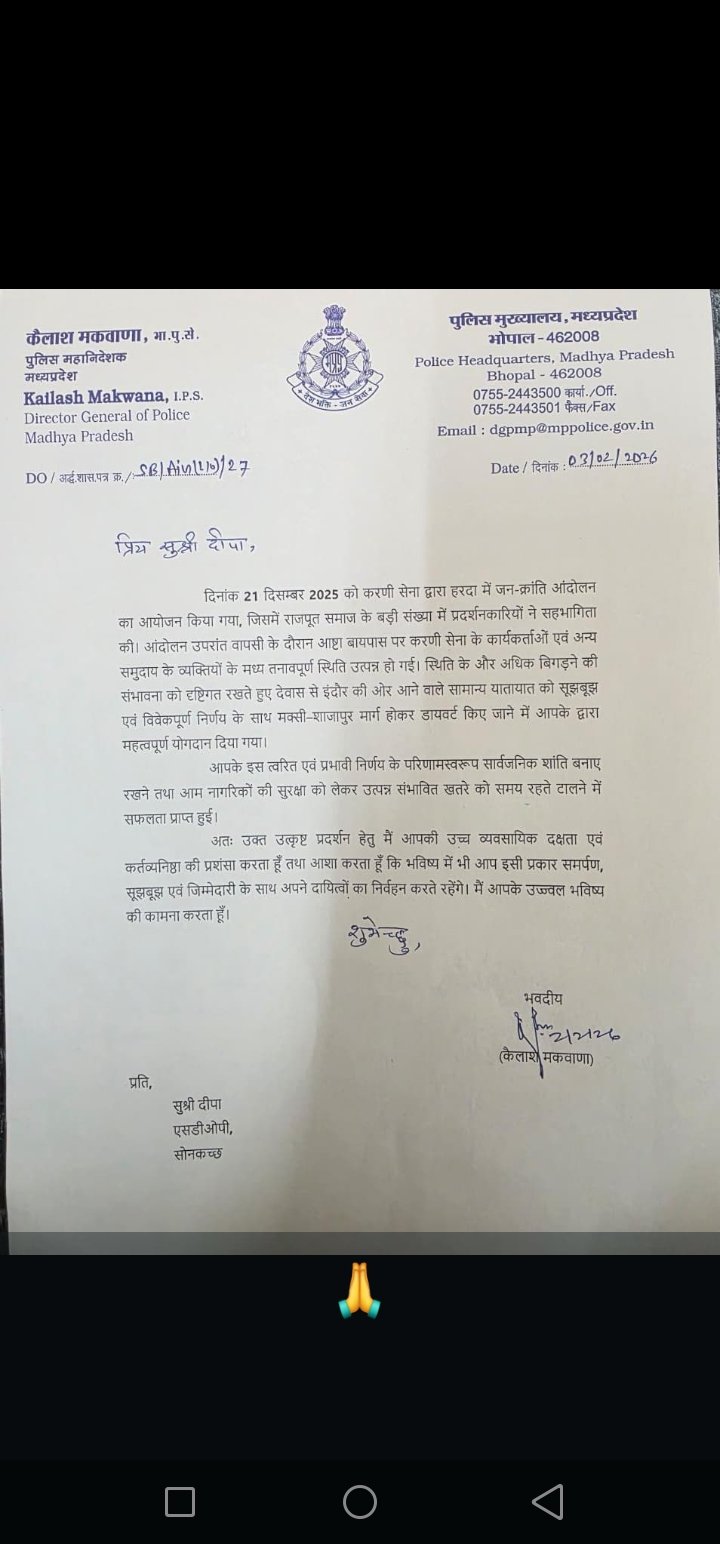 कैलाश मकवाणा, भा.पु.से.
पुलिस महानिदेशक
मध्यप्रदेश
Kailash Makwana, I.P.S.
Director General of Police
Madhya Pradesh
देश भक्ति - जन सेवा
पुलिस मुख्यालय, मध्यप्रदेश
भोपाल - 462008
Police Headquarters, Madhya Pradesh
Bhopal - 462008
0755-2443500 कार्या./Off.
0755-2443501 फैक्स/Fax
Email : dgpmp@mppolice.gov.in
DO / अर्द्ध.शास.पत्र क्र./
Date / दिनांक : 03/02/2026
प्रिय सुश्री दीपा,
दिनांक 21 दिसम्बर 2025 को करणी सेना द्वारा हरदा में जन-क्रांति आंदोलन
का आयोजन किया गया, जिसमें राजपूत समाज के बड़ी संख्या में प्रदर्शनकारियों ने सहभागिता
की। आंदोलन उपरांत वापसी के दौरान आष्टा बायपास पर करणी सेना के कार्यकर्ताओं एवं अन्य
समुदाय के व्यक्तियों के मध्य तनावपूर्ण स्थिति उत्पन्न हो गई। स्थिति के और अधिक बिगड़ने की
संभावना को दृष्टिगत रखते हुए देवास से इंदौर की ओर आने वाले सामान्य यातायात को सूझबूझ
एवं विवेकपूर्ण निर्णय के साथ मक्सी-शाजापुर मार्ग होकर डायवर्ट किए जाने में आपके द्वारा
महत्वपूर्ण योगदान दिया गया।
आपके इस त्वरित एवं प्रभावी निर्णय के परिणामस्वरूप सार्वजनिक शांति बनाए
रखने तथा आम नागरिकों की सुरक्षा को लेकर उत्पन्न संभावित खतरे को समय रहते टालने में
सफलता प्राप्त हुई।
अतः उक्त उत्कृष्ट प्रदर्शन हेतु मैं आपकी उच्च व्यवसायिक दक्षता एवं
कर्तव्यनिष्ठा की प्रशंसा करता हूँ तथा आशा करता हूँ कि भविष्य में भी आप इसी प्रकार समर्पण,
सूझबूझ एवं जिम्मेदारी के साथ अपने दायित्वों का निर्वहन करते रहेंगे। मैं आपके उज्ज्वल भविष्य
की कामना करता हूँ।
शुभेच्छु,
भवदीय
(कैलाश मकवाणा)
प्रति,
सुश्री दीपा
एसडीओपी,
सोनकच्छ